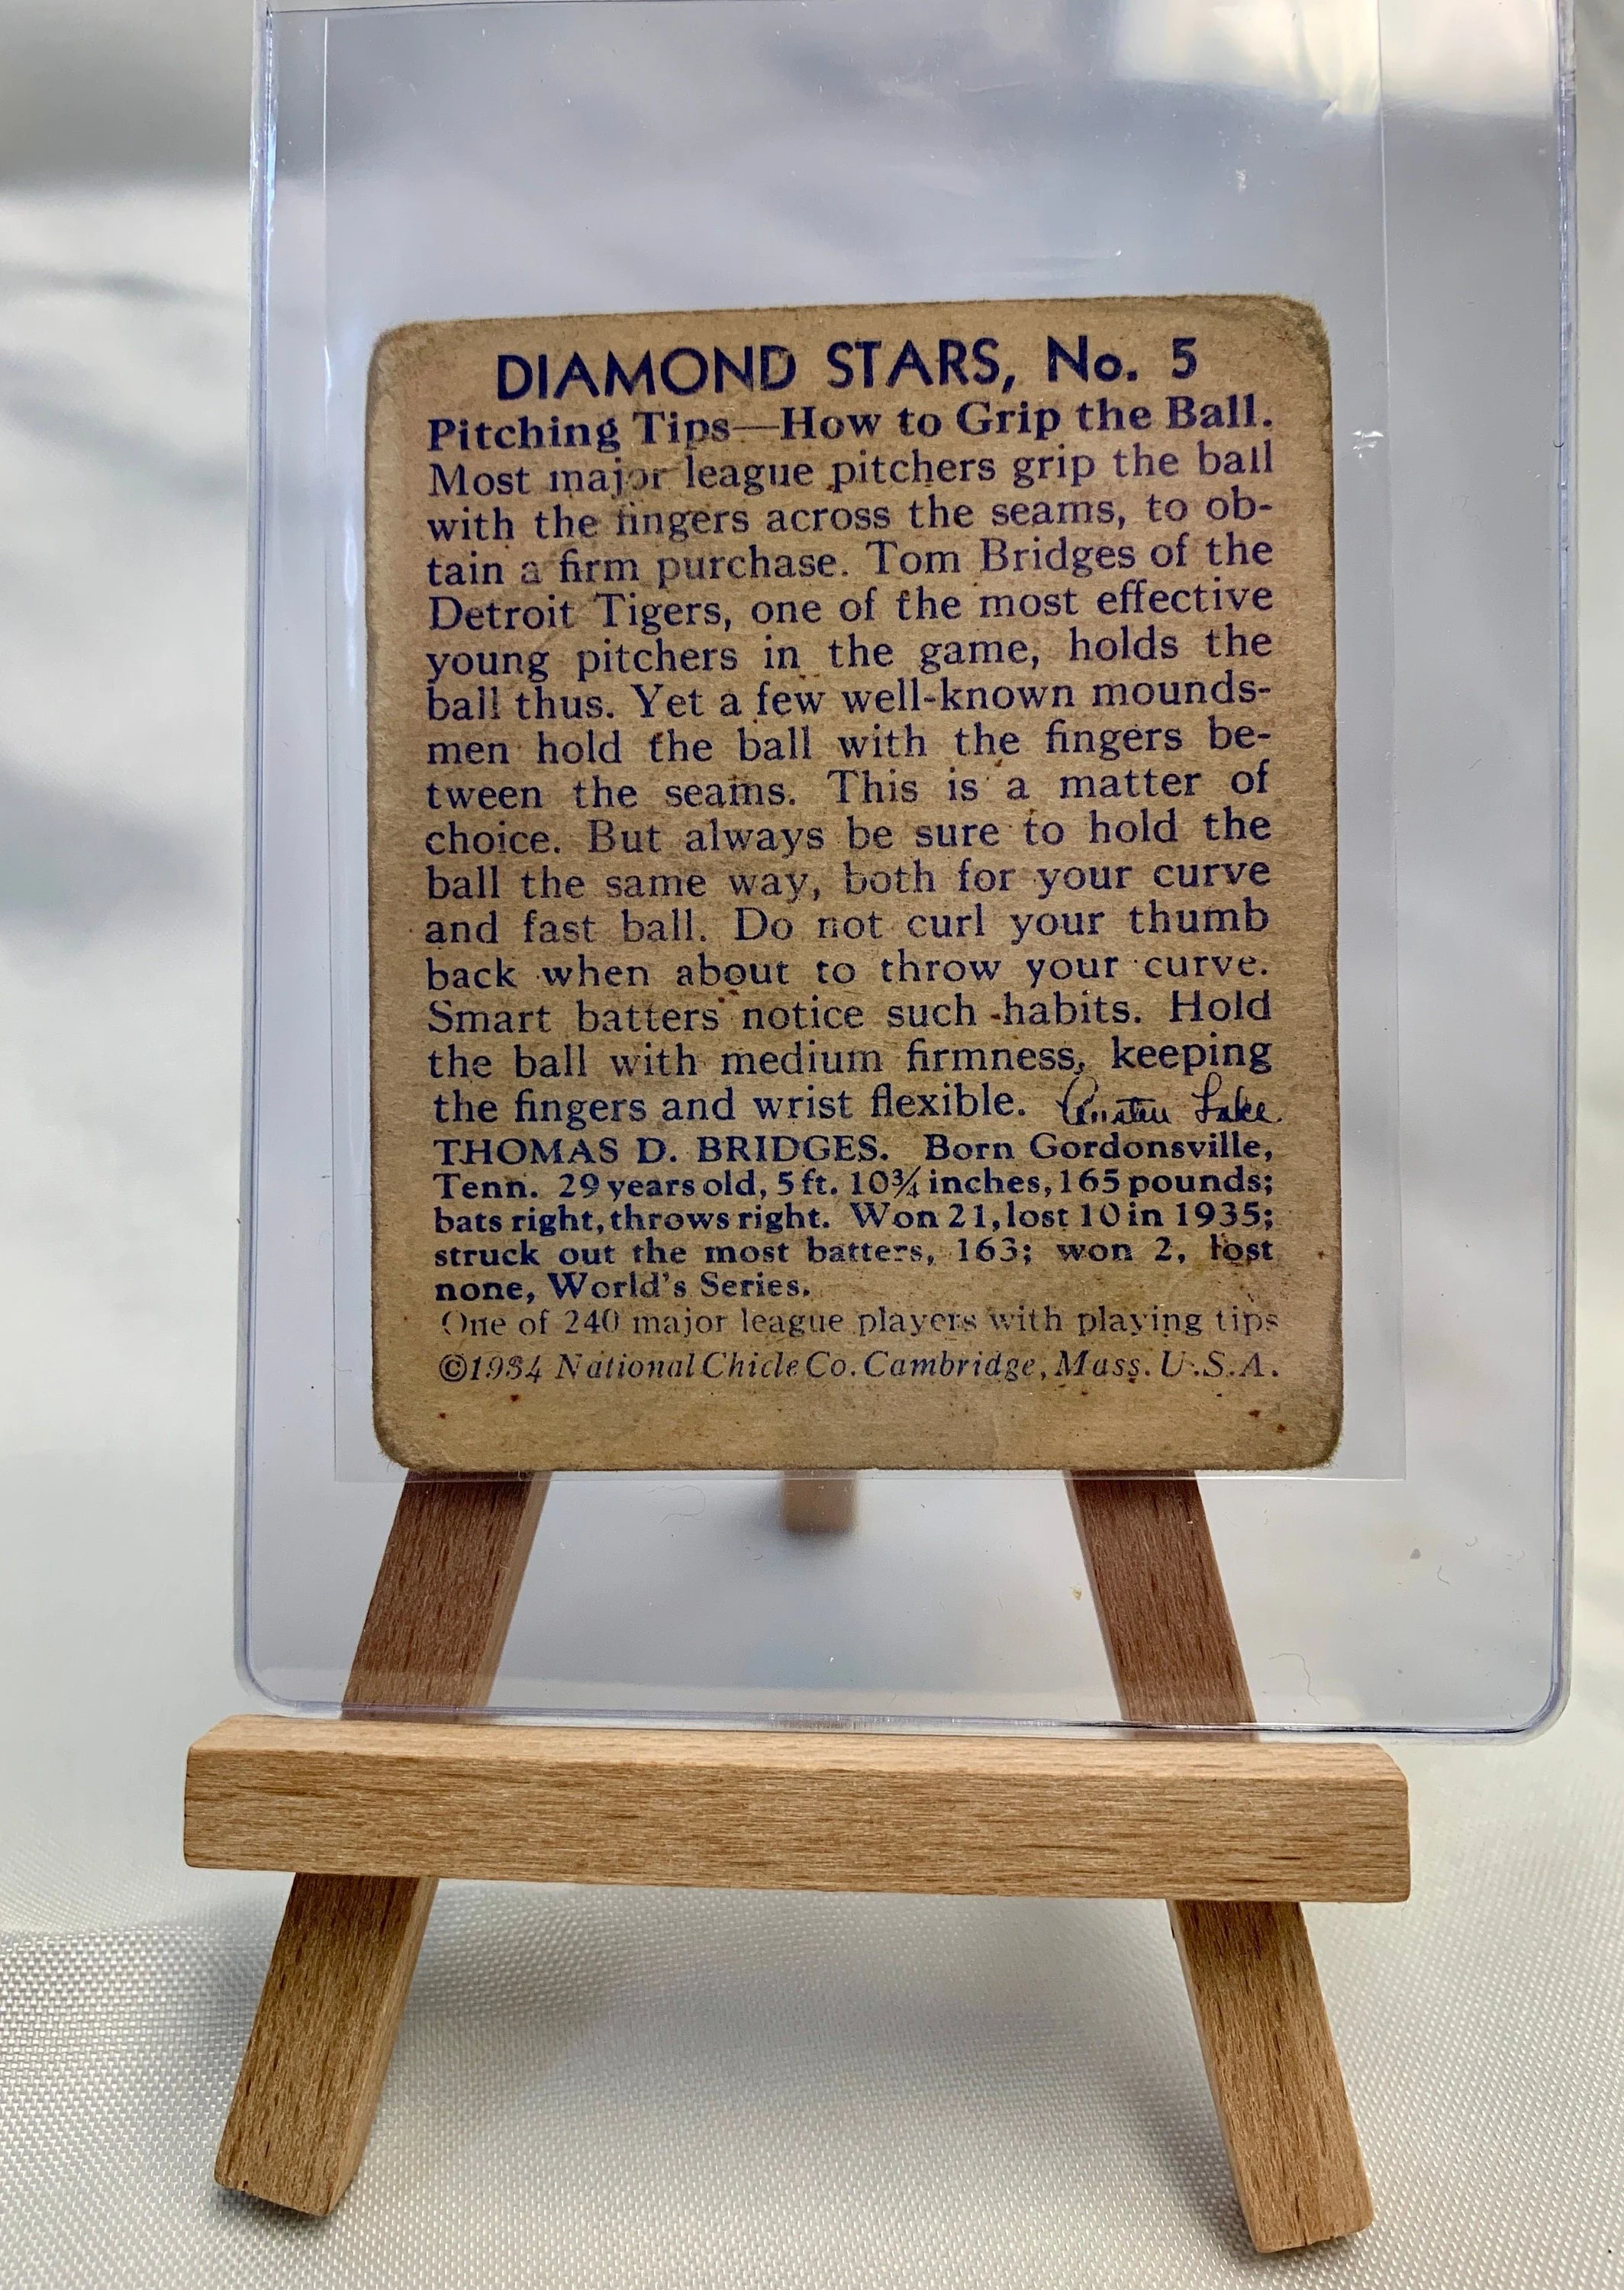 DIAMOND STARS, No. 5
Pitching Tips—How to Grip the Ball.
Most major league pitchers grip the ball
with the fingers across the seams, to ob-
tain a firm purchase. Tom Bridges of the
Detroit Tigers, one of the most effective
young pitchers in the game, holds the
ball thus. Yet a few well-known mounds-
men hold the ball with the fingers be-
tween the seams. This is a matter of
choice. But always be sure to hold the
ball the same way, both for your curve
and fast ball. Do not curl your thumb
back when about to throw your curve.
Smart batters notice such habits. Hold
the ball with medium firmness, keeping
the fingers and wrist flexible. Austen Lake
THOMAS D. BRIDGES. Born Gordonsville,
Tenn. 29 years old, 5 ft. 10¾ inches, 165 pounds;
bats right, throws right. Won 21, lost 10 in 1935;
struck out the most batters, 163; won 2, lost
none, World's Series.
One of 240 major league players with playing tips
©1934 National Chicle Co. Cambridge, Mass. U.S.A.